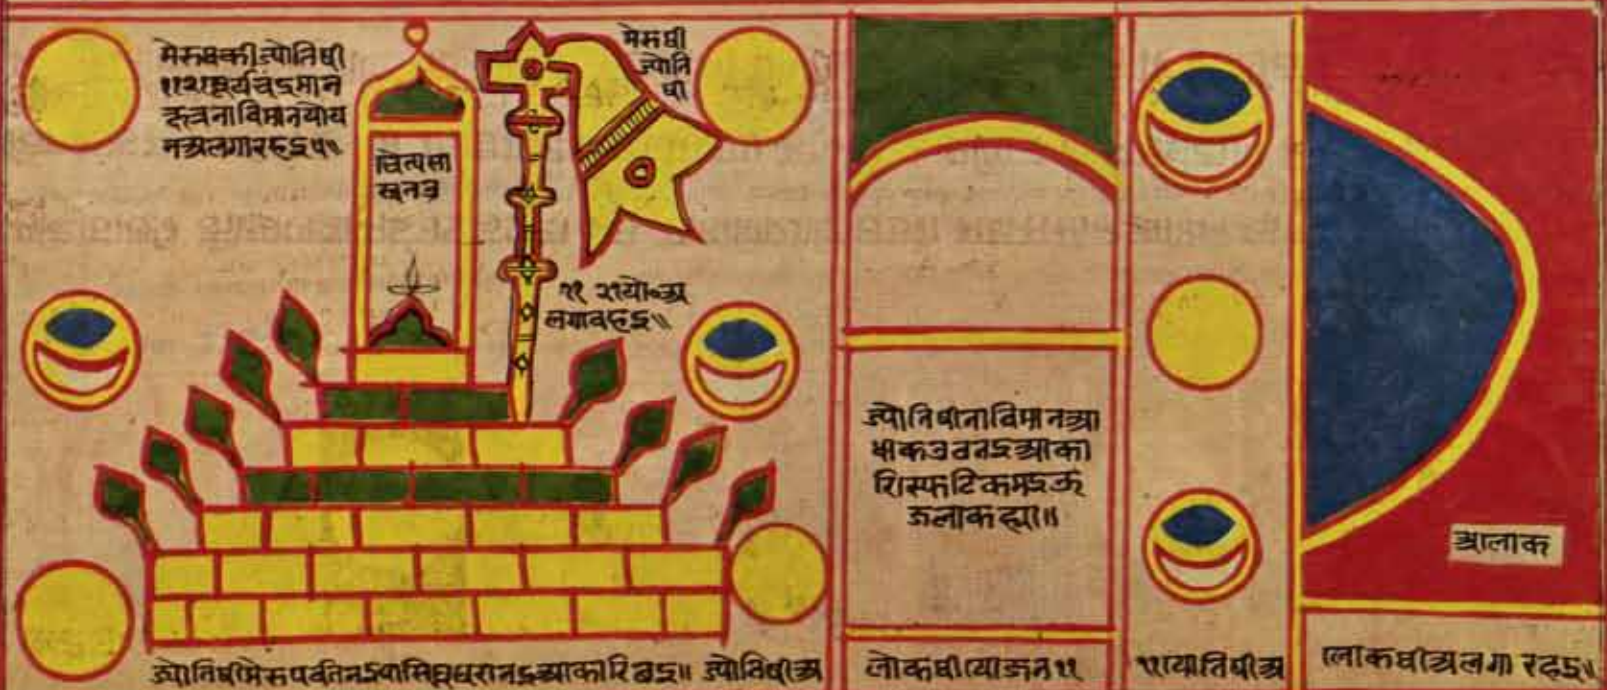 मेरुथकी ज्योतिषी
११२१ सूर्य चंडमान
रूवनाविमानयोय
नअलगारहइ५॥
मेरुथी
ज्योति
षी
चैत्यसा
स्वतउ
११ २१यो॰अ
लगावहइ॥
ज्योतिषीनाविमानआ
धाकउवनइआका
रिस्फाटिकमइऊ
ऊलाकह्या॥
आलाक
ज्योतिषीमेरुपर्वतिनइपासिआकारिबइ॥ ज्योतिषीअ
लोकथीयोजन११
११योतिषीअ
लोकथीअलगा रहइ॥